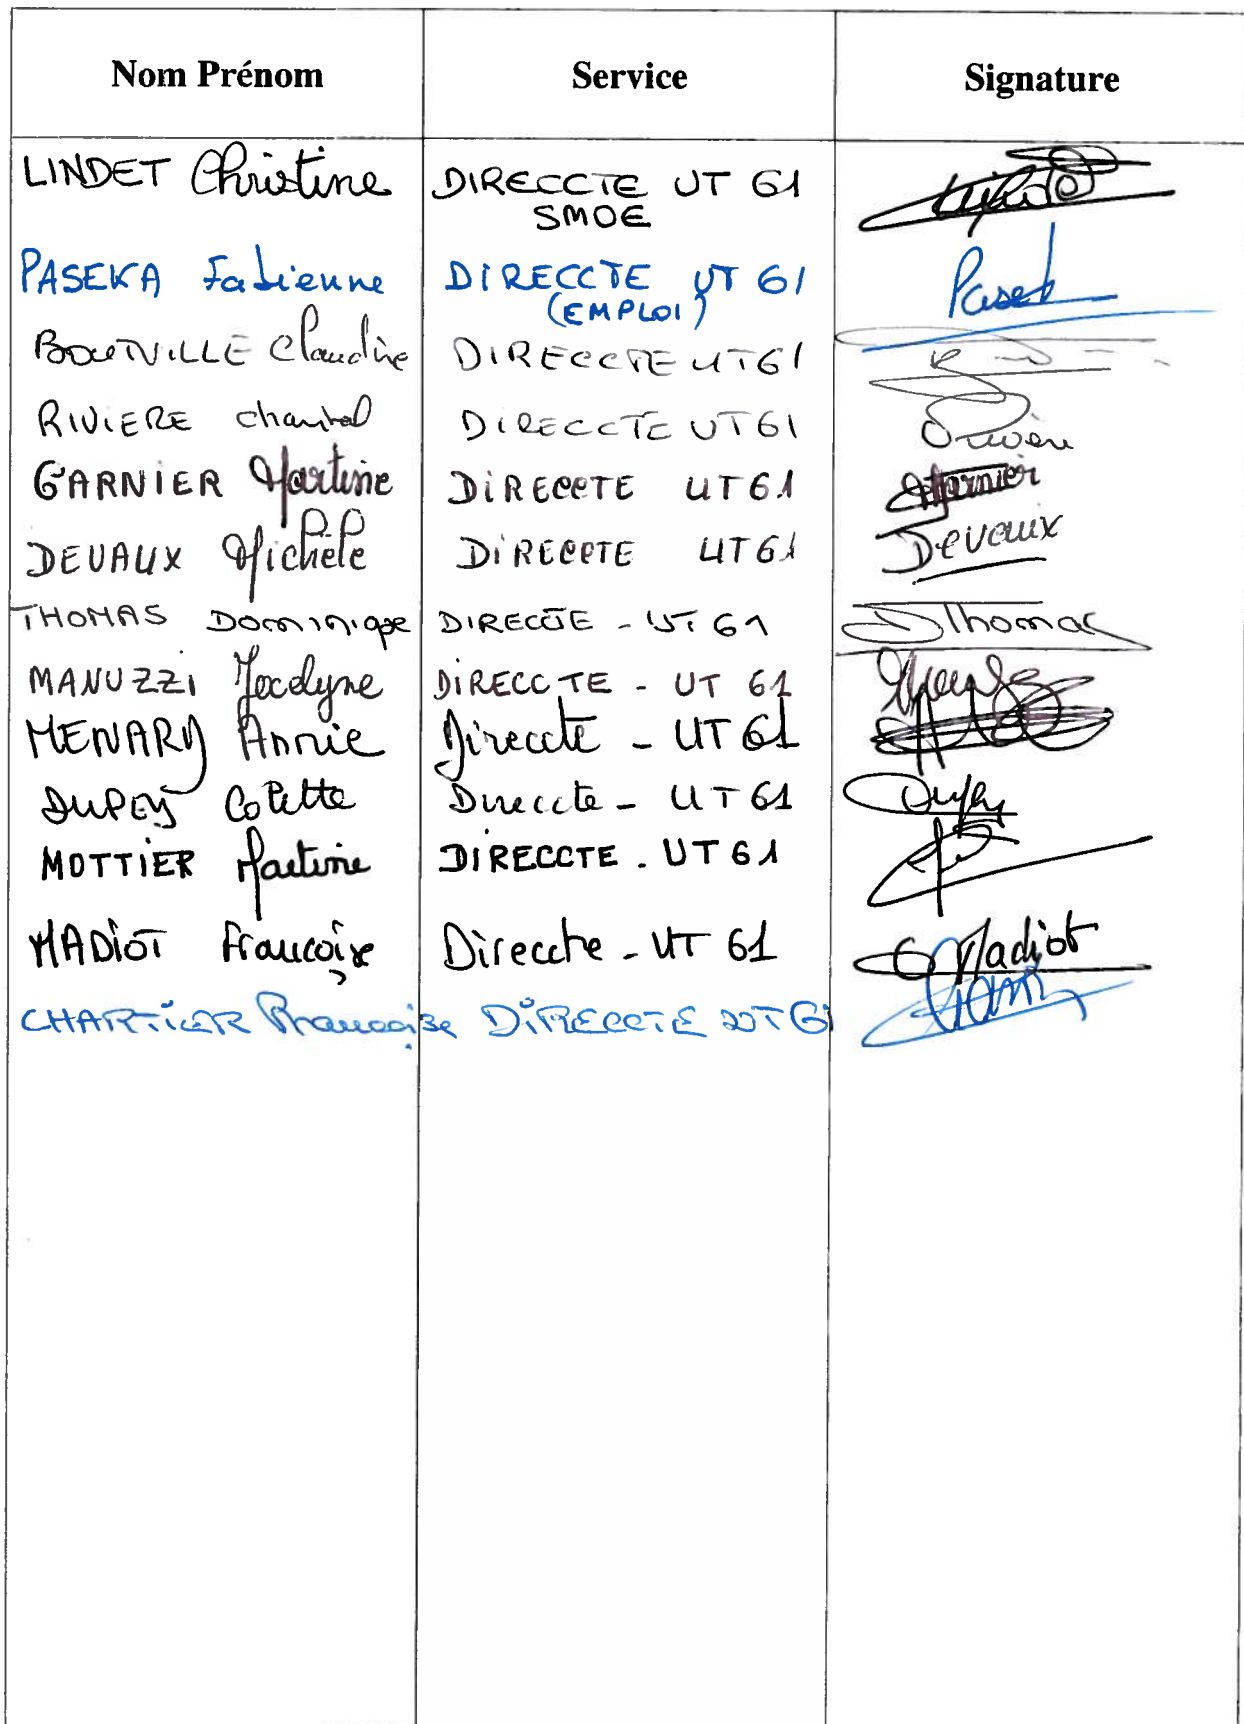 Nom Prénom Service Signature
LINDET Christine DIRECCTE UT 61
SMOE
PASEKA Fabienne DIRECCTE UT 61 Pasek
(EMPLOI)
BOUTVILLE Claudine DIRECCTE UT61
RIVIERE Chantal DIRECCTE UT61 Rivière
GARNIER Martine DiRECCTE UT61 Garnier
DEVAUX Michèle DiRECCTE UT61 Devaux
THOMAS Dominique DIRECCTE - UT 61 DThomas
MANUZZI Jocelyne DiRECCTE - UT 61
MENARD Annie Direccte - UT 61
DUPEY Colette Direccte - UT 61 Dupey
MOTTIER Martine DIRECCTE - UT 61
MADIOT Françoise Direccte - UT 61 Madiot
CHARTIER Françoise DIRECCTE UT 61